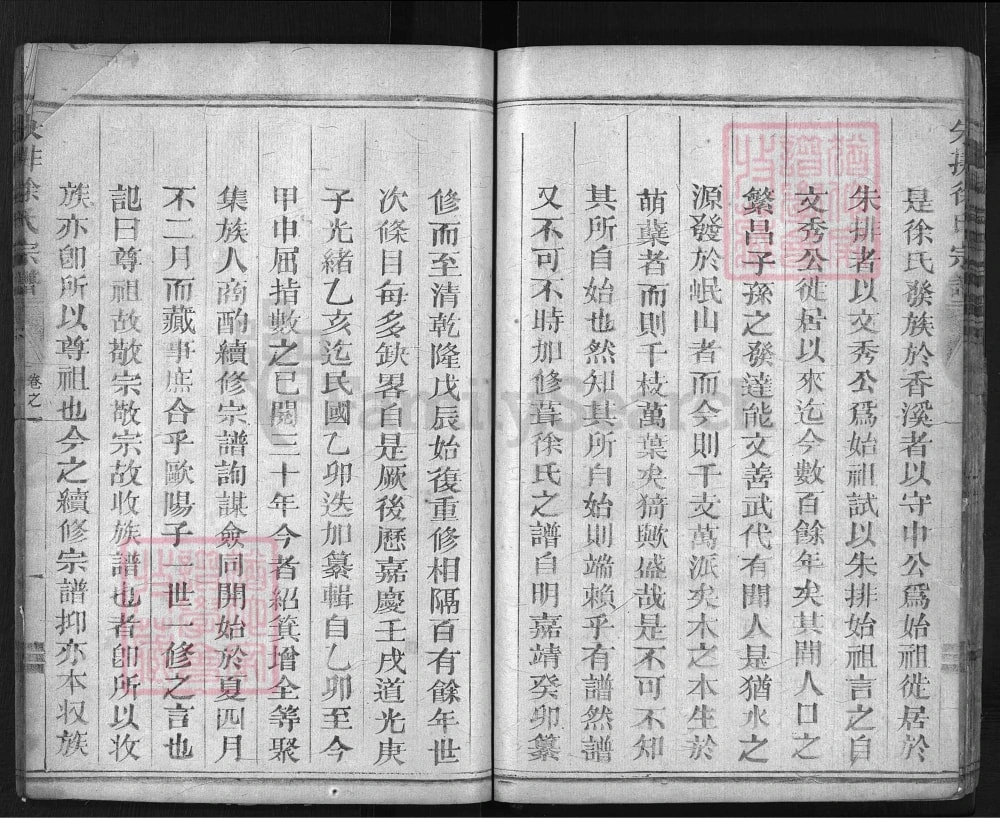 是徐氏發族於香溪者以守中公爲始祖徙居於
朱排者以文秀公爲始祖試以朱排始祖言之自
文秀公徙居以來迄今數百餘年矣其間人口之
繁昌子孫之發達能文善武代有聞人是猶水之
源發於岷山者而今則千支萬派矣木之本生於
萌蘖者而則千枝萬葉矣猗歟盛哉是不可不知
其所自始也然知其所自始則端賴乎有譜然譜
又不可不時加修葺徐氏之譜自明嘉靖癸卯纂
修而至清乾隆戊辰始復重修相隔百有餘年世
次條目每多缺畧自是厥後歷嘉慶壬戌道光庚
子光緒乙亥迄民國乙卯迭加纂輯自乙卯至今
甲申屈指數之已閱三十年今者紹箕增全等聚
集族人商酌續修宗譜詢謀僉同開始於夏四月
不二月而蕆事庶合乎歐陽子一世一修之言也
記曰尊祖故敬宗敬宗故收族譜也者卽所以收
族亦卽所以尊祖也今之續修宗譜抑亦本収族
徐氏宗譜
卷之
FamilySearch